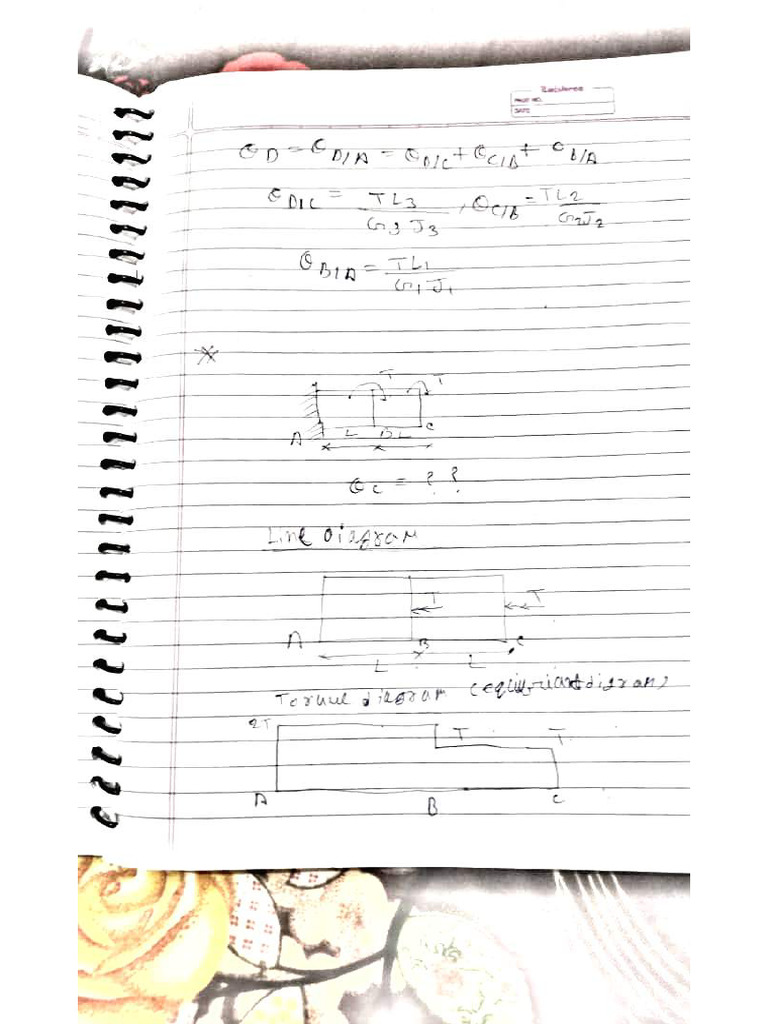 PAGE NO.
DATE
θD = θD/A = θD/C + θC/B + θB/A
θD/C = TL3 / G3 J3 , θC/B = TL2 / G2J2
θB/A = TL1 / G1 J1
T T
A L B L C
θC = ? ?
Line Diagram
T T
A B C
L L
Torque diagram (equilibriant diagram)
2T T T
A B C